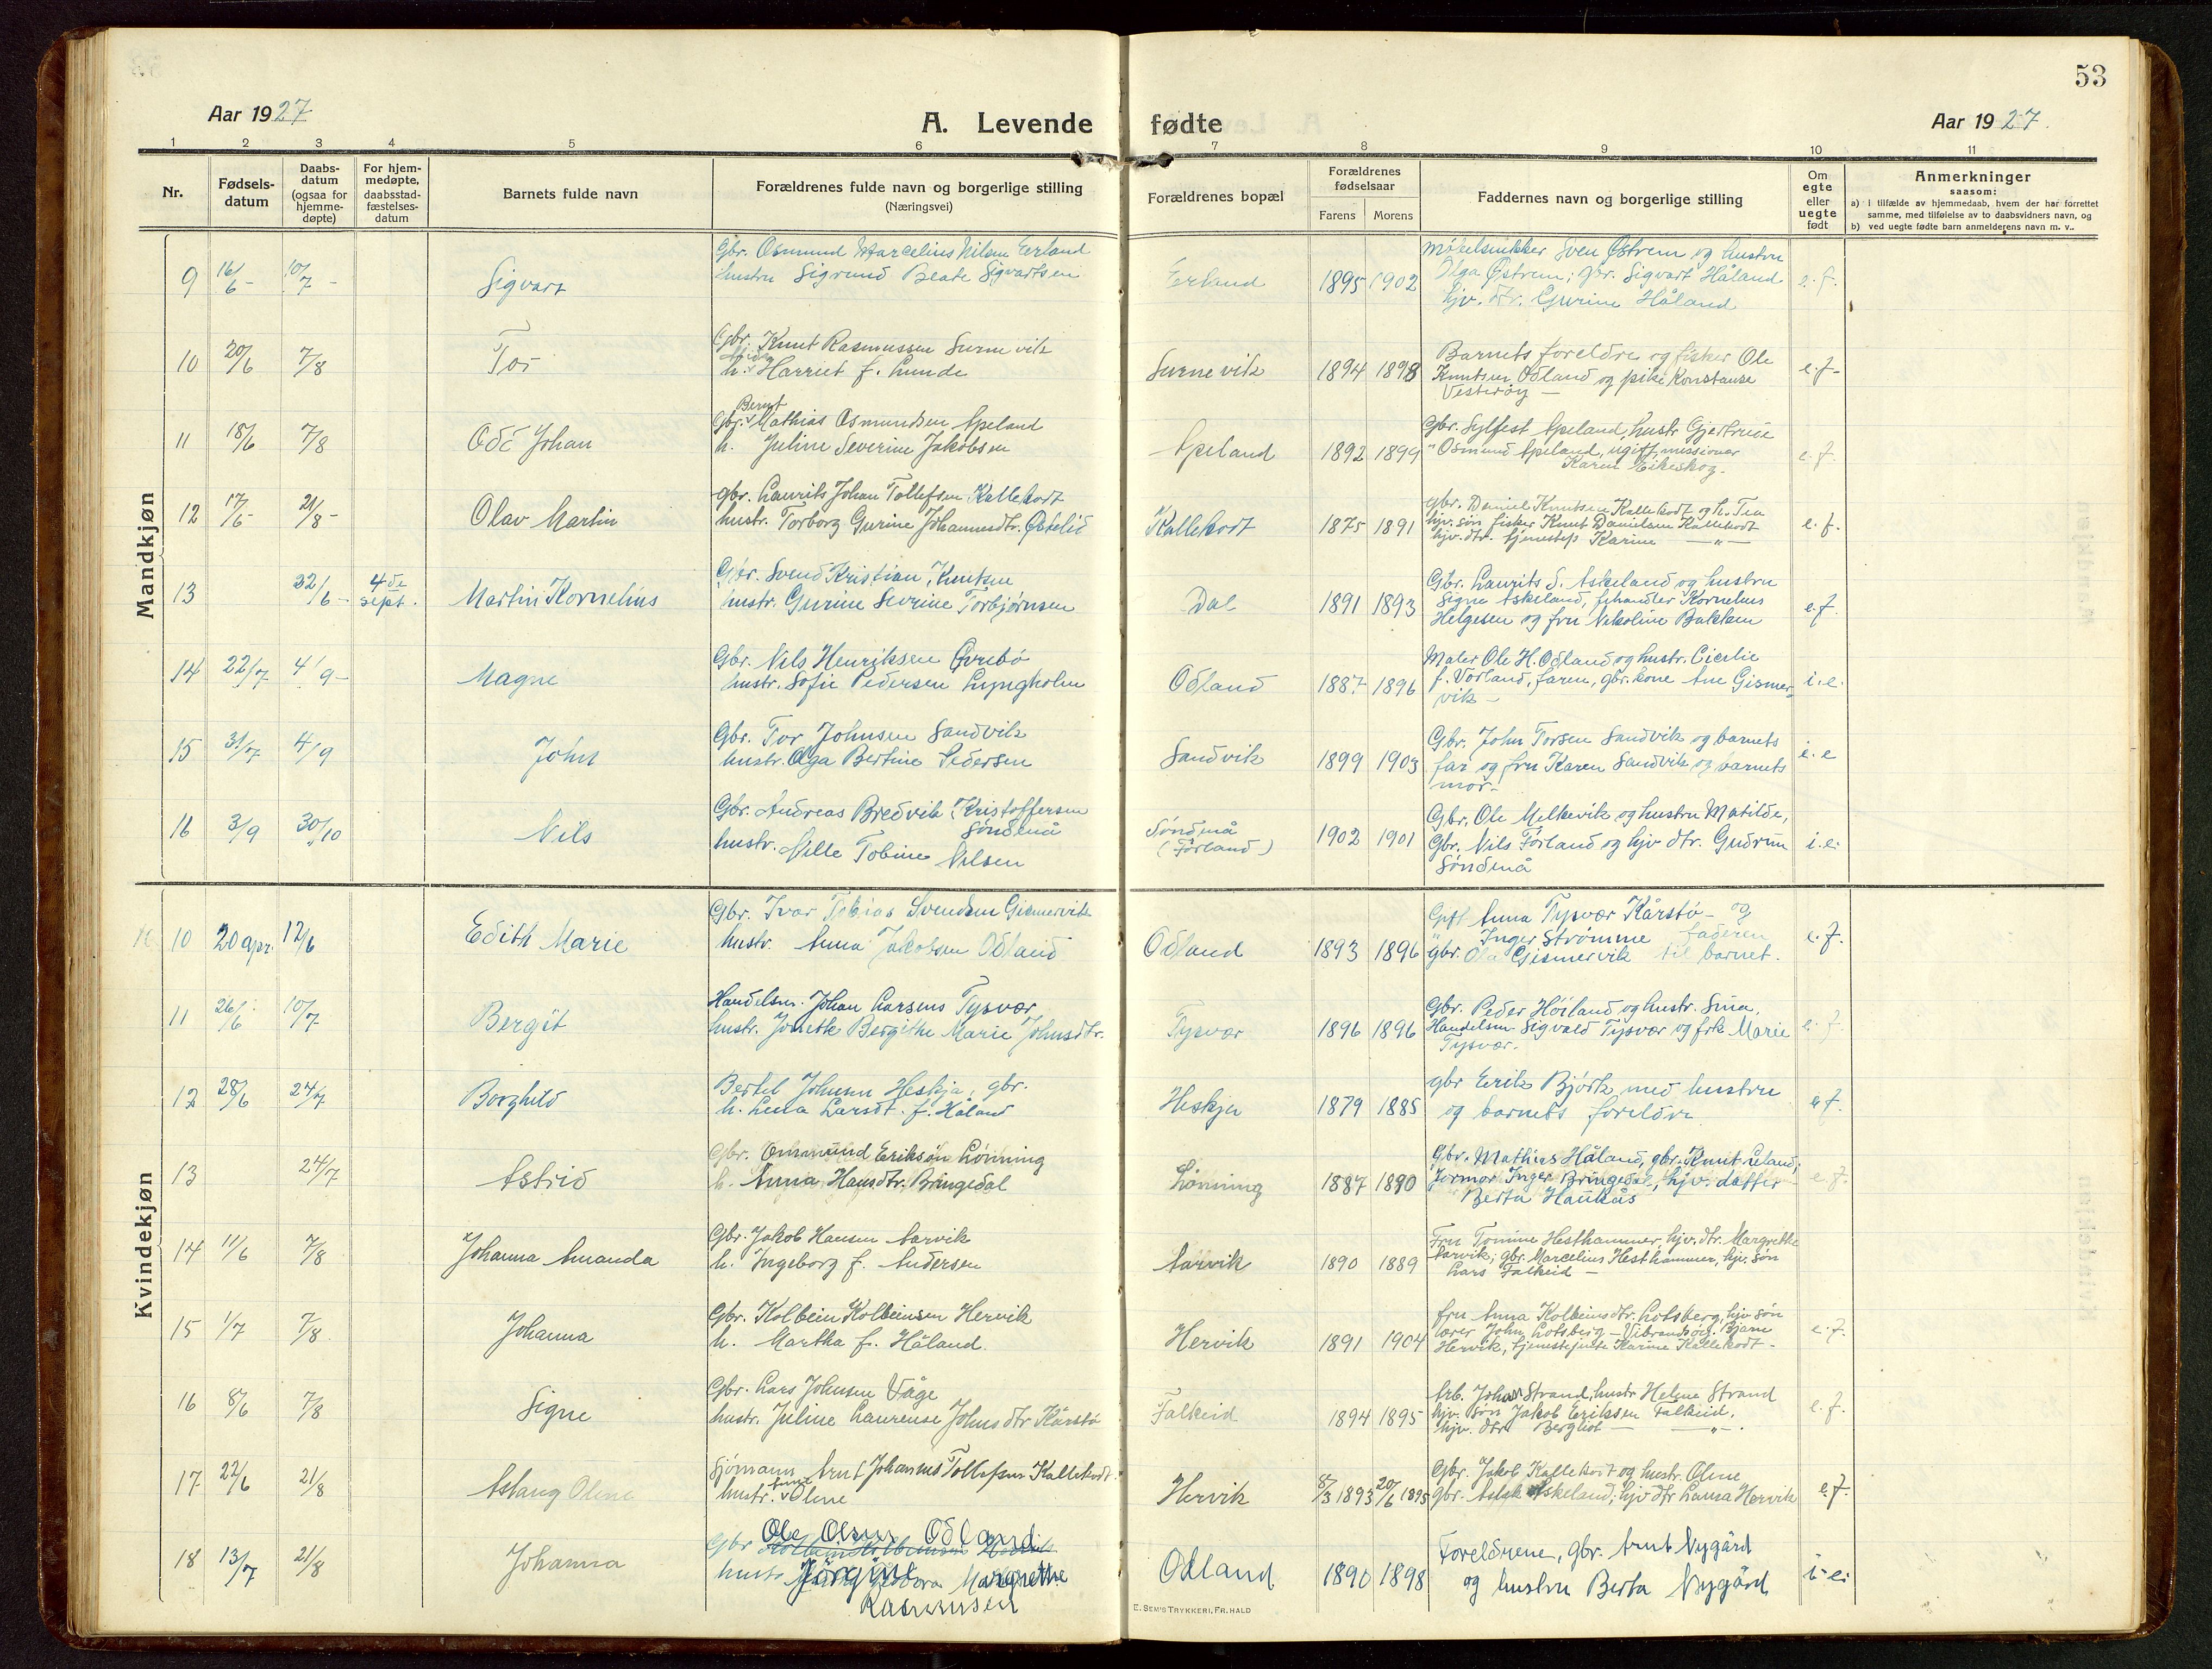 53
Aar 1927
A. Levende fødte
Aar 1927.
1 2 3 4 5 6 7 8 9 10 11
Nr.
Fødsels-
datum
Daabs-
datum
(ogsaa for
hjemme-
døpte)
For hjem-
medøpte,
daabsstad-
fæstelses-
datum
Barnets fulde navn
Forældrenes fulde navn og borgerlige stilling
(Næringsvei)
Forældrenes bopæl
Forældrenes
fødselsaar
Farens Morens
Faddernes navn og borgerlige stilling
Om
egte
eller
uegte
født
Anmerkninger
saasom:
a) i tilfælde av hjemmedaab, hvem der har forrettet
samme, med tilføielse av to daabsvidners navn, og
b) ved uegte fødte barn anmelderens navn m. v..
Mandkjøn
9 16/6 - 10/7 - Sigvart
Gbr. Osmund Marcelius Nilsen Erland
hustru Sigrund Beate Sigvartsen
Erland 1895 1902
Møbelsnikker Sven Østrem og hustru
Olga Østrem; gbr. Sigvart Håland
hjv. dtr. Gurine Håland
e. f.
10 20/6 7/8 Tor
Gbr. Knut Rasmussen Surnevik
h. Harriet f. Lunde
Surnevik 1894 1898
Barnets foreldre og fisker Ole
Knutsen Odland og pike Konstanse
Vesterøy -
e. f.
11 18/6 7/8 Odd Johan
Bernt
Gbr. Mathias Osmundsen Apeland
h. Juline Severine Jakobsen
Apeland 1892 1899
Gbr. Sylfest Apeland, hustr Gjertrud
" Osmund Apeland, ugift, missionær
Karen Eikeskog.
e. f.
12 17/6 - 21/8 - Olav Martin
gbr. Laurits Johan Tollefsen Kallekodt
hustr. Torborg Gurine Johannesdtr. Østelid
Kallekodt 1875 1891
gbr. Daniel Knutsen Kallekodt og h. Tea
hjv. søn fisker Knut Danielsen Kallekodt
hjv. dtr. tjenestep Karine - " -
e. f.
13 22/6 - 4de sept. Martin Kornelius
Gbr. Svend Kristian Knutsen
hustr. Gurine Severine Torbjørnsen
Dal 1891 1893
Gbr. Laurits S. Askeland og hustru
Signe Askeland, fhandler Kornelius
Helgesen og fru Nikoline Bakken
e. f.
14 22/7 4/9 - Magne
Gbr. Nils Henriksen Øvrebø
hustr. Sofie Pedersen Lyngholm
Odland 1887 1896
Maler Ole H. Odland og hustr. Cicelie
f. Vorland, faren, gbr. kone Ane Gismer-
vik -
i. e.
15 31/7 4/9 John
Gbr. Tor Johnsen Sandvik
hustr. Olga Bertine Pedersen
Sandvik 1899 1903
Gbr. John Torsen Sandvik og barnets
far og fru Karen Sandvik og barnets
mor -
i. e
16 3/9 30/10 Nils
Gbr. Andreas Bredvik Kristoffersen
Søndenå
hustr. Nille Tobine Nilsen
Søndenå
(Førland) 1902 1901
Gbr. Ole Melkevik og hustru Matilde,
Gbr. Nils Førland og hjv dtr. Gudrun
Søndenå
i. e.
Kvindekjøn
10 20 apr. 12/6 Edith Marie
Gbr. Ivar Tobias Svendsen Gismervik
hustr. Anna Jakobsen Odland
Odland 1893 1896
Gift Anna Tysvær Kårstø - og
" Inger Strømme faderen
gbr. Ola Gismervik til barnet.
e. f.
11 26/6 10/7 Bergit
Handelsm. Johan Larsens Tysvær
hustr. Jonette Bergithe Marie Johnsdtr.
Tysvær 1896 1896
Gbr. Peder Høiland og hustr. Sina.
Handelsm Sigvald Tysvær og frk Marie
Tysvær.
e. f.
12 28/6 24/7 Borghild
Bertel Johnsen Heskja, gbr.
h. Lena Larsdt. f. Håland
Heskja 1879 1885
gbr Erik Bjørk med hustru
og barnets foreldre
e f.
13 24/7 Astrid
Gbr. Ommund Eriksøn Lønning
h. Anna Hansdtr. Bringedal
Lønning 1887 1890
Gbr. Mathias Håland, gbr. Knut Leland,
Jormor Inger Bringedal, hjv. datter
Berta Haukås
e. f.
14 11/6 7/8 Johanna Amanda
Gbr. Jakob Hansen Aarvik
h. Ingeborg f. Andersen
Aarvik 1890 1889
Fru Tomine Hesthammer, hjv. dtr. Margrethe
Aarvik; gbr. Marcelius Hesthammer, hjv. søn
Lars Falkeid -
15 1/7 7/8 Johanna
Gbr. Kolbein Kolbeinsen Hervik
h. Martha f. Håland.
Hervik 1891 1904
fru Anna Kolbeinsdtr. Lotsberg, hjv søn
lærer John Lotsberg - Vibrandsøy. Bjarne
Hervik, tjenestejente Karine Kallekodt -
e. f.
16 8/6 7/8 Signe
Gbr. Lars Johnsen Våge
hustr. Juline Laurense Johnsdtr Kårstø
Falkeid 1894 1895
Arb. Johan Strand, hustr Helene Strand
hjv. søn Jakob Eriksen Falkeid.
hjv. dtr Bergliot - " -
e. f.
17 22/6 21/8 Aslaug Oline
Sjømann Arnt Johannes Tollefsen Kallekodt.
hustr. Oline
Hervik 8/3 1893 20/6 1895
Gbr. Jakob Kallekodt og hustr. Oline
gbr. Aslak Askeland; hjv dtr Laura Hervik
e. f.
18 13/7 21/8 Johanna
Ole Olsen Odland
Gbr
hustr Jørgine Teodora Margrethe
Rasmussen
Odland 1890 1898
Foreldrene, gbr. Arnt Nygård
og hustru Berta Nygård
i. e.
E. SEM'S TRYKKERI, FR.HALD